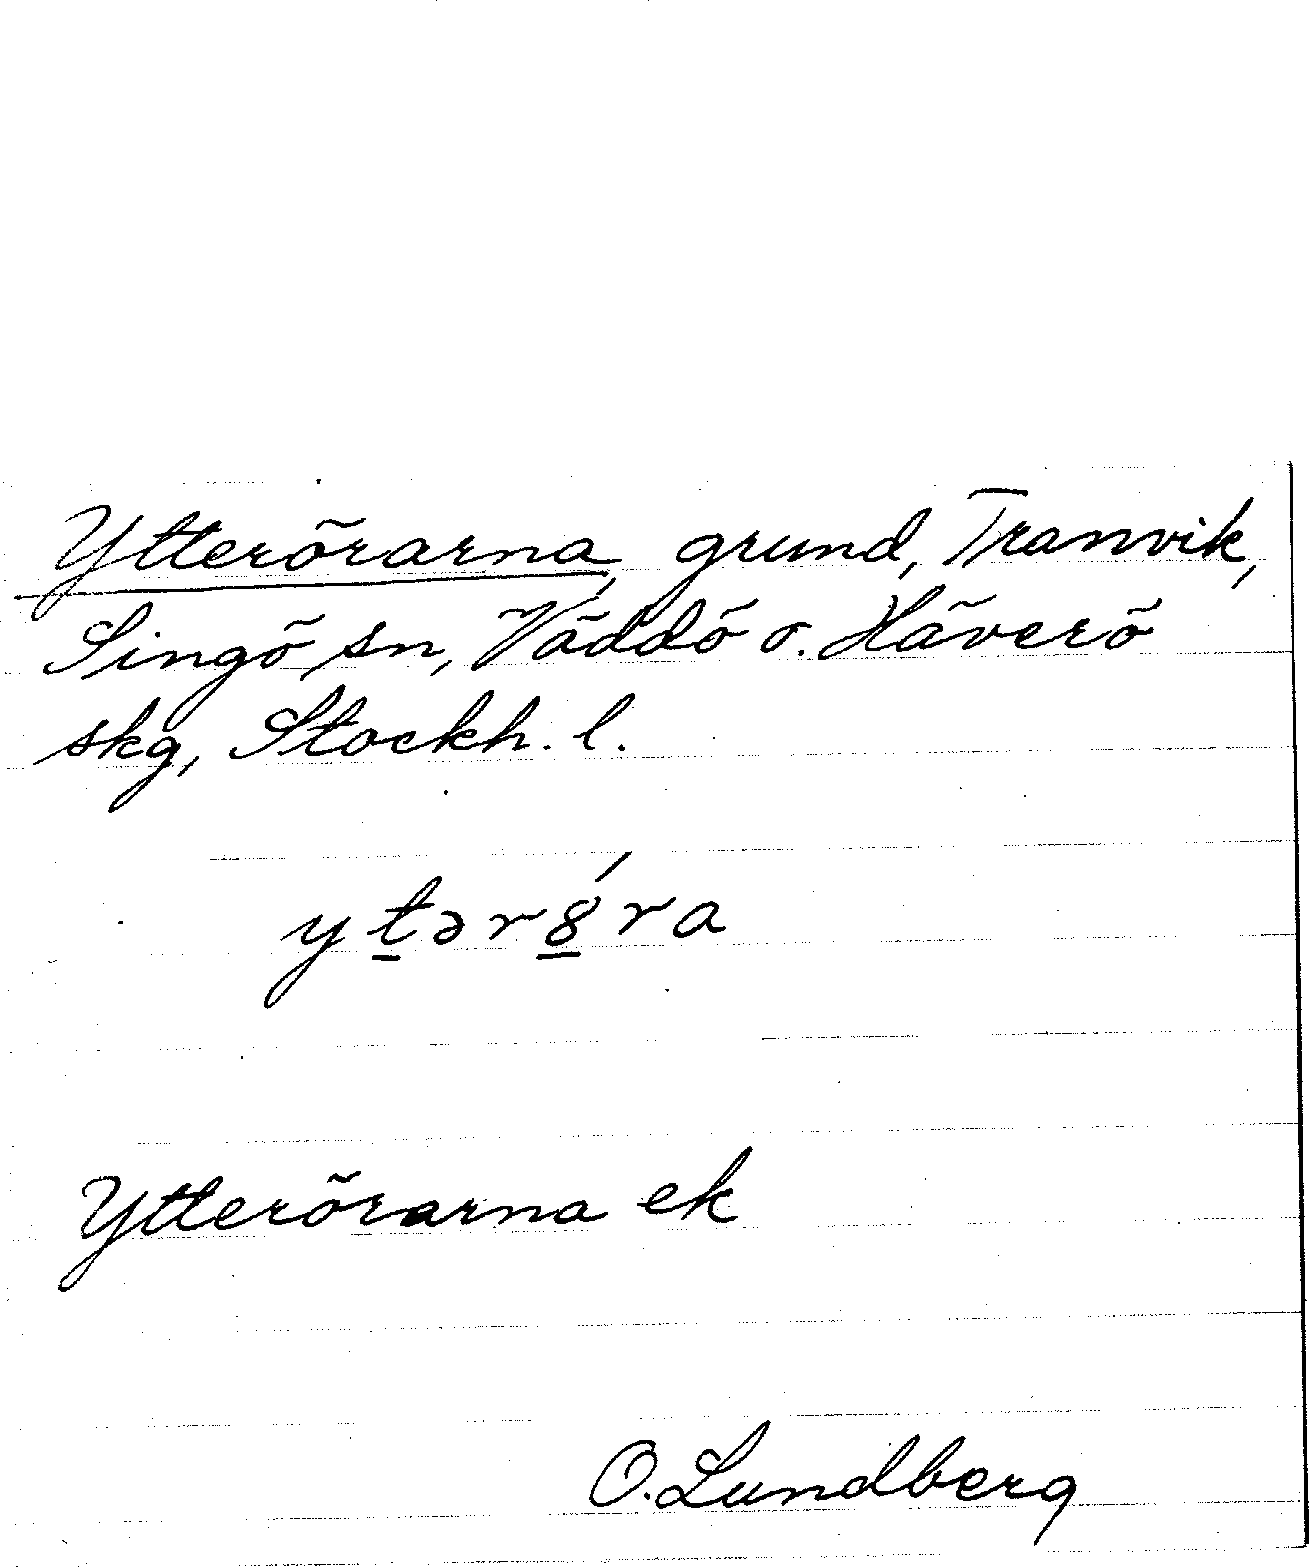 Ytterörarna, grund, Tranvik,
Singö sn, Väddö o. Häverö
skg, Stockh. l.
yt̲ərȣ̲́ra
Ytterörarna ek
O. Lundberg